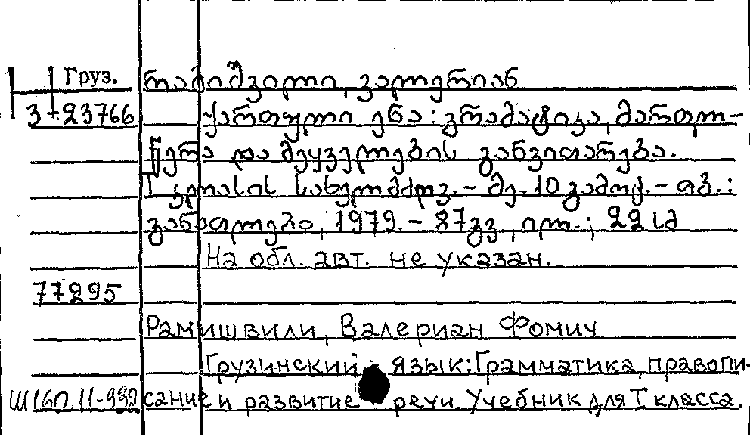 Груз. რამიშვილი, ვალერიან
3-23766 ქართული ენა: გრამატიკა, მართლ-
წერა და მეყველების განვითარება.
I კლასის სახელმძღვ. – მე-10 გამოც. – თბ.:
განათლება, 1979. – 87 გვ., ილ.; 22 სმ
На обл. авт. не указан.
77295
Рамишвили, Валериан Фомич
Грузинский язык: Грамматика, правопи-
сание и развитие речи. Учебник для I класса.